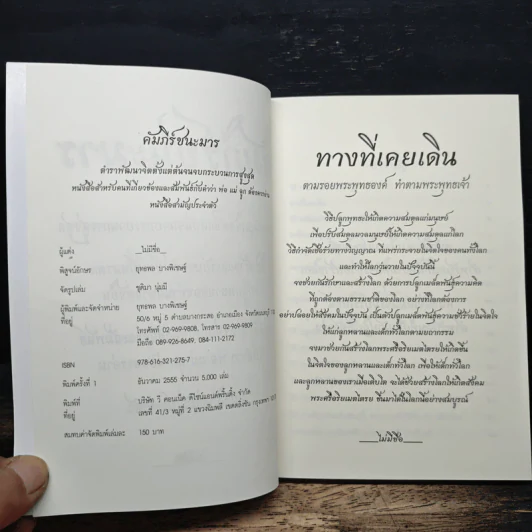 คัมภีร์ชนะมาร
ตำราพัฒนาจิตตั้งแต่ต้นจนจบกระบวนการสูงสุด
หนังสือสำหรับคนที่เกี่ยวข้องและสัมพันธ์กับคำว่า พ่อ แม่ ลูก
หนังสือสามัญประจำตัว
ผู้แต่ง _ไม่มีชื่อ_
พิสูจน์อักษร ยุทอพล บางพิเชษฐ์
จัดรูปเล่ม ชุติมา นุ่มมี
ผู้พิมพ์และจัดจำหน่าย ยุทอพล บางพิเชษฐ์
ที่อยู่ 50/6 หมู่ 5 ตำบลบางกระสอ อำเภอเมือง จังหวัดนนทบุรี
โทรศัพท์ 02-969-9808, โทรสาร 02-969-9809
มือถือ 089-926-8649, 084-111-2172
ISBN 978-616-321-275-7
พิมพ์ครั้งที่ 1 ธันวาคม 2555 จำนวน 5,000 เล่ม
พิมพ์ที่ บริษัท วี คอนเน็ค ดีไซน์แอนด์พริ้นติ้ง จำกัด
ที่อยู่ เลขที่ 41/3 หมู่ที่ 2 แขวงฉิมพลี เขตตลิ่งชัน กรุงเทพฯ
สมทบค่าจัดพิมพ์เล่มละ 150 บาท
ทางที่เคยเดิน
ตามรอยพระพุทธองค์ ทำตามพระพุทธเจ้า
วิธีปลูกพุทธให้เกิดความสมดุลแก่มนุษย์
เพื่อปรับสมดุลมวลมนุษย์ให้เกิดความสมดุลแก่โลก
วิธีกำจัดเชื้อร้ายทางวิญญาณ ที่แพร่กระจายในจิตใจของคนทั้งโลก
และทำให้โลกวุ่นวายในปัจจุบันนี้
จงช่วยกันรักษาและสร้างโลก ด้วยการปลูกเมล็ดพันธุ์ความคิด
ที่ถูกต้องตามธรรมชาติของโลก อย่างที่โลกต้องการ
อย่าปล่อยให้สังคมในปัจจุบันนี้ เป็นตัวบ่มเพาะเมล็ดพันธุ์ความชั่วร้ายในจิตใจ
ให้แก่ลูกหลานและเด็กทั่วโลกตามยถากรรม
จงมาช่วยกันสร้างโลกพระศรีอริยเมตไตรยให้เกิดขึ้น
ในจิตใจของลูกหลานและเด็กทั่วโลก เพื่อให้เด็กทั่วโลก
และลูกหลานของเราเมื่อเติบโต จะได้ช่วยสร้างโลกให้เกิดสังคม
พระศรีอริยเมตไตรย ขึ้นมาได้ในโลกนี้อย่างสมบูรณ์
_ไม่มีชื่อ_